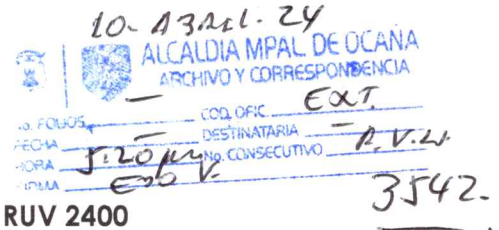 10-ABRIL-24
ALCALDIA MPAL. DE OCAÑA
ARCHIVO Y CORRESPONDENCIA
No. FOLIOS — COD. OFIC. EXT.
FECHA — DESTINATARIA
HORA 5:20 pm No. CONSECUTIVO
FIRMA
3542.
RUV 2400